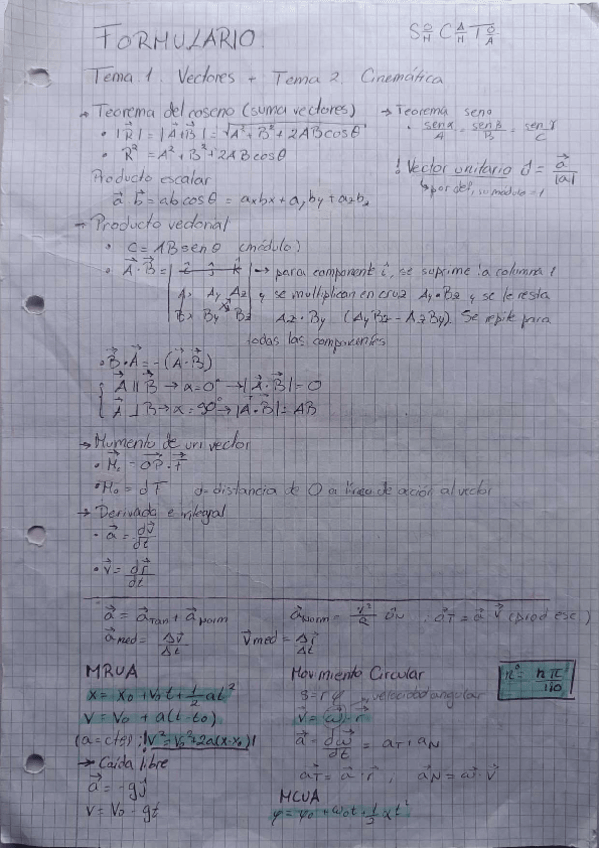 FORMULARIO.
S O/H C A/H T O/A
Tema 1. Vectores + Tema 2 Cinemática
→ Teorema del coseno (suma vectores)
• |R⃗| = |A⃗+B⃗| = √A²+B²+2ABcosθ
• R² = A²+B²+2ABcosθ
→ Teorema seno
• senα/A = senβ/B = senγ/C
! Vector unitario û = a⃗/|a|
↳ por def, su módulo = 1
Producto escalar
a⃗·b⃗ = ab cosθ = axbx + ayby + azbz
→ Producto vectorial
• C = AB senθ (módulo)
• A⃗·B⃗ = | î ĵ k̂ | → para componente î, se suprime la columna 1
Ax Ay Az y se multiplican en cruz Ay·Bz y se le resta
Bx By Bz Az·By (AyBz - AzBy). Se repite para
todas las componentes
• B⃗·A⃗ = -(A⃗·B⃗)
{ A⃗ || B⃗ → α=0° → |A⃗·B⃗| = 0
A⃗ ⊥ B → α=90° → |A⃗·B⃗| = AB
→ Momento de un vector
• M⃗o = OP⃗·F⃗
• Mo = dF d- distancia de O a línea de acción al vector
→ Derivada e integral
• a⃗ = dv⃗/dt
• v⃗ = dr⃗/dt
a⃗ = a⃗Tan + a⃗Norm
aNorm = v²/R ûN ; aT = a⃗·v⃗ (prod esc)
a⃗med = Δv⃗/Δt v⃗med = Δr⃗/Δt
MRUA
x = x₀ + v₀t + 1/2 at²
v = v₀ + a(t-t₀)
(a=cte) ¡v²=v₀²+2a(x-x₀)!
→ Caída libre
a⃗ = -gĵ
v = v₀ - gt
Movimiento Circular
n° = nπ/180
s = rφ velocidad angular
v⃗ = ω⃗·r⃗
a⃗ = dω⃗/dt = aT + aN
a⃗T = α⃗·r⃗ ; a⃗N = ω⃗·v⃗
MCUA
φ = φ₀ + ω₀t + 1/2 αt²